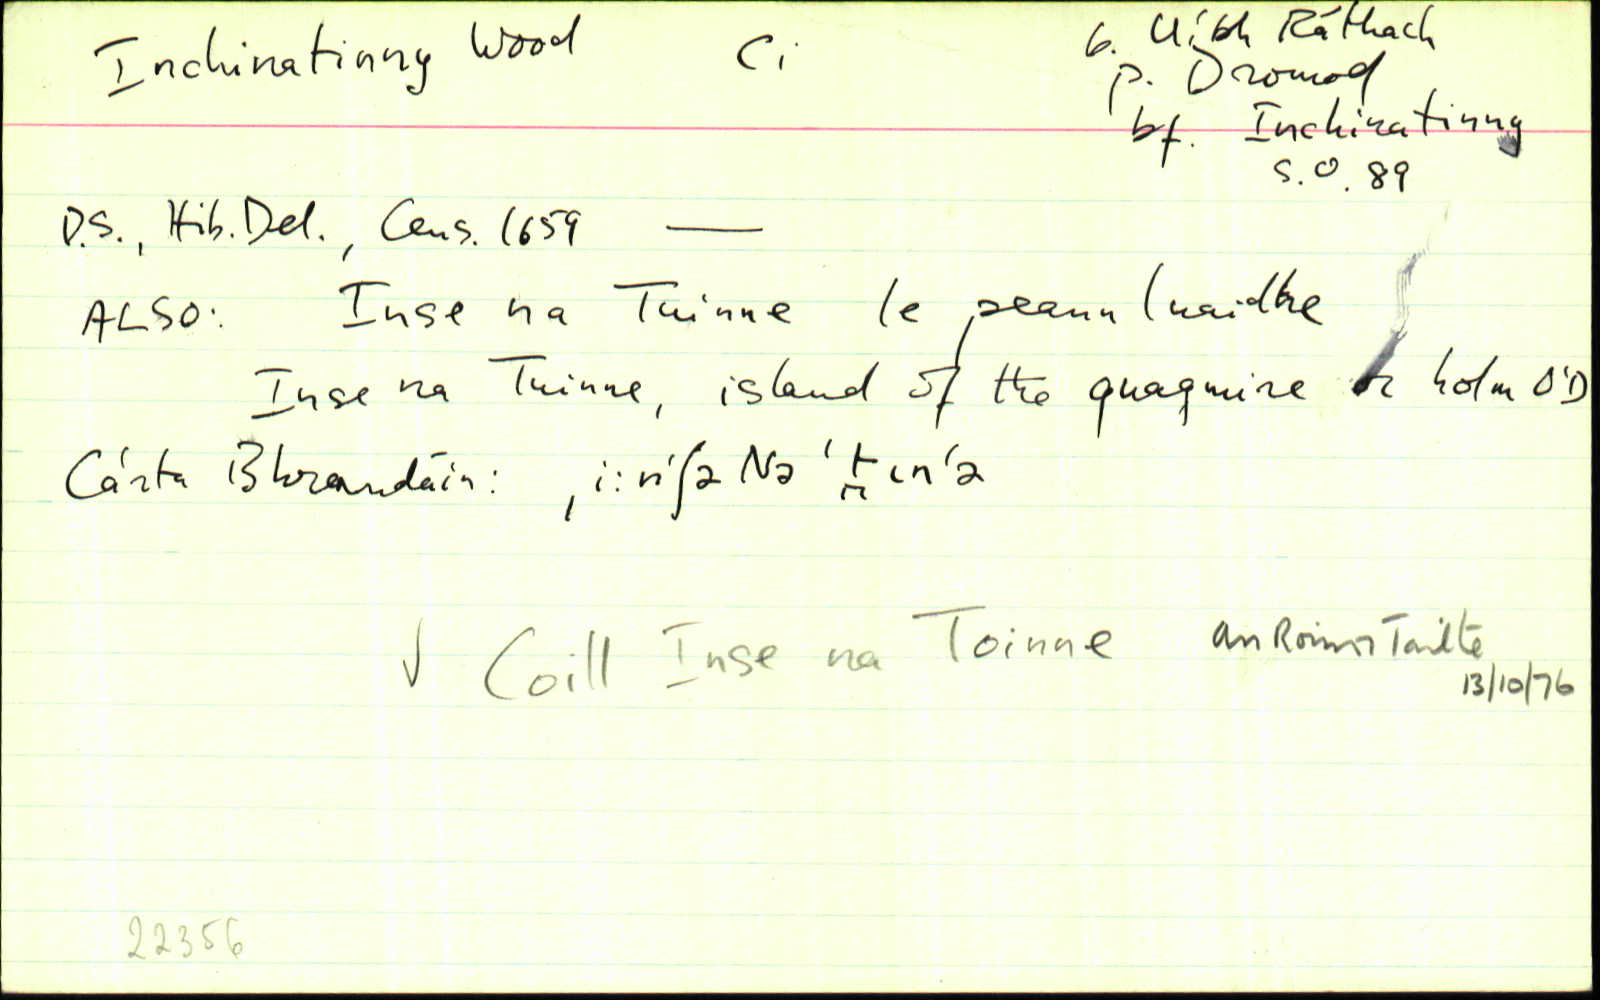 Inchinatinny Wood Ci
b. Uíbh Ráthach
p. Dromod
bf. Inchinatinny
S.O. 89
D.S., Hib. Del., Cens. 1659 —
ALSO: Inse na Tuinne le peannluaidhe
Inse na Tuinne, island of the quagmire or holm O'D
Cárta Bhreandáin:
✓ Coill Inse na Toinne an Roinn Tailte
13/10/76
22356